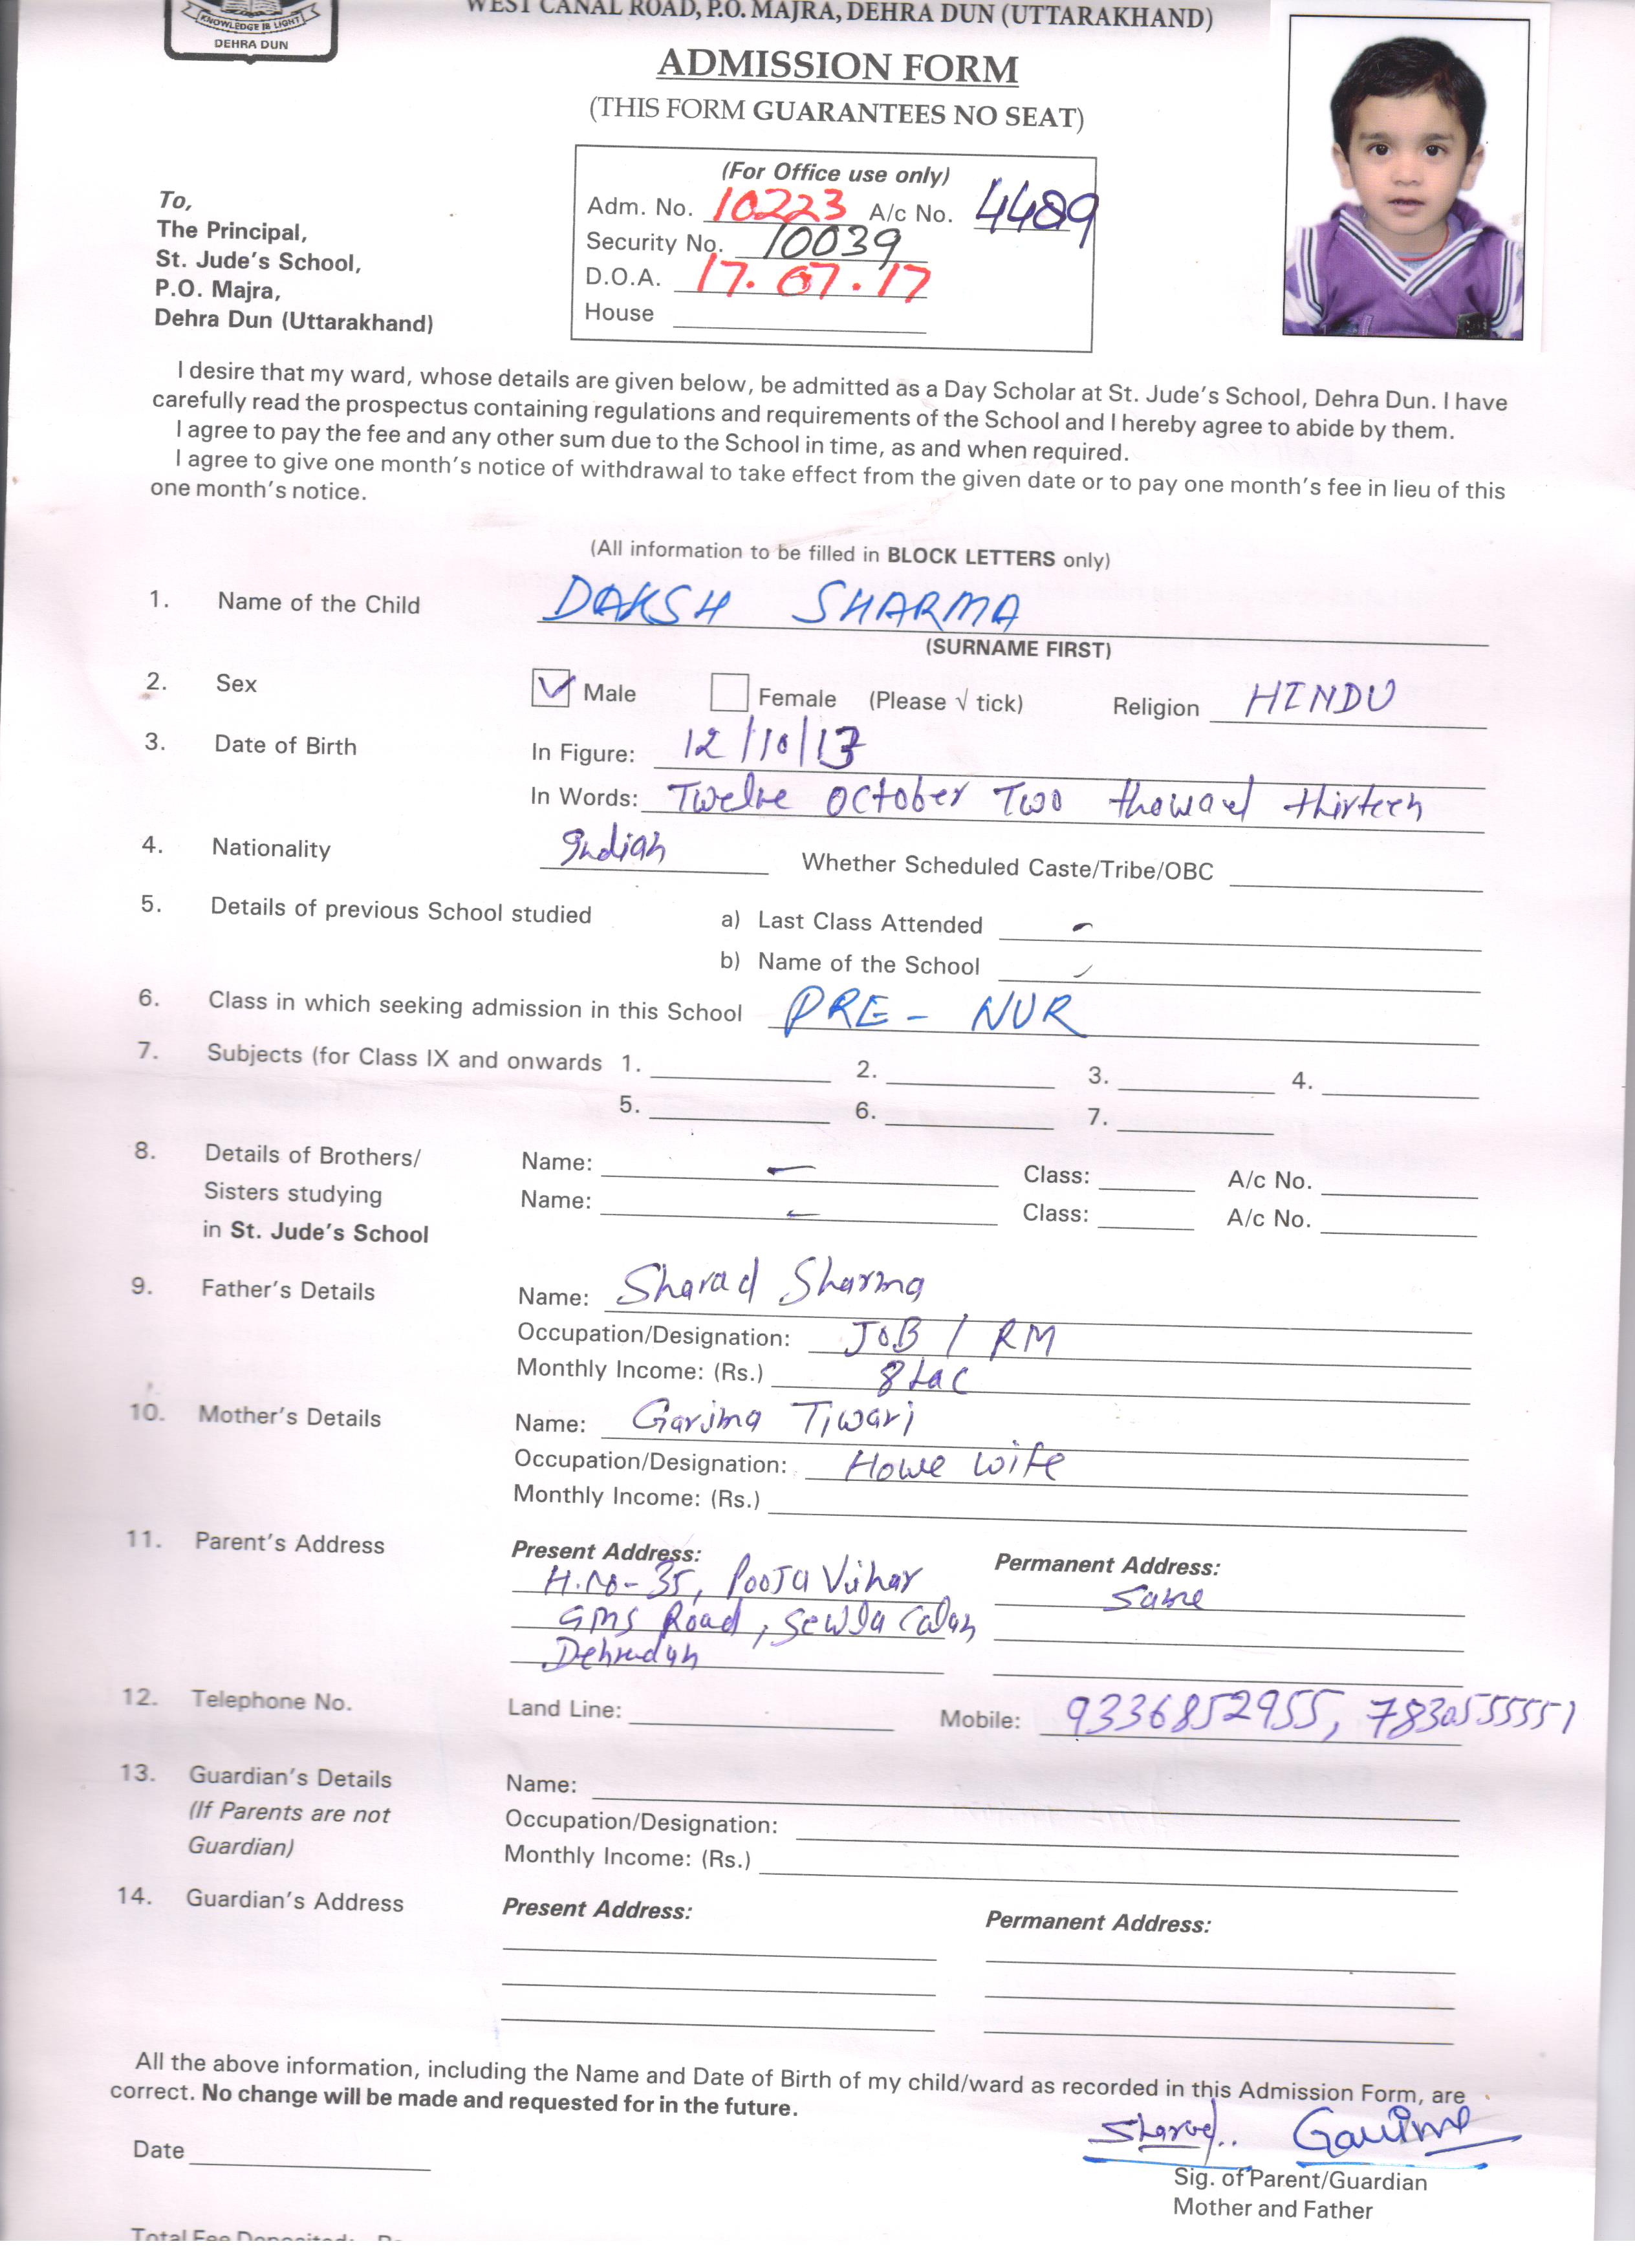 KNOWLEDGE IS LIGHT
DEHRA DUN
WEST CANAL ROAD, P.O. MAJRA, DEHRA DUN (UTTARAKHAND)
ADMISSION FORM
(THIS FORM GUARANTEES NO SEAT)
(For Office use only)
Adm. No. 10223 A/c No. 4489
Security No. 10039
D.O.A. 17.07.17
House
To,
The Principal,
St. Jude's School,
P.O. Majra,
Dehra Dun (Uttarakhand)
I desire that my ward, whose details are given below, be admitted as a Day Scholar at St. Jude's School, Dehra Dun. I have
carefully read the prospectus containing regulations and requirements of the School and I hereby agree to abide by them.
I agree to pay the fee and any other sum due to the School in time, as and when required.
I agree to give one month's notice of withdrawal to take effect from the given date or to pay one month's fee in lieu of this
one month's notice.
(All information to be filled in BLOCK LETTERS only)
1. Name of the Child DAKSH SHARMA
(SURNAME FIRST)
2. Sex Male Female (Please √ tick) Religion HINDU
3. Date of Birth In Figure: 12/10/13
In Words: Twelve October Two thousand thirteen
4. Nationality Indian Whether Scheduled Caste/Tribe/OBC
5. Details of previous School studied a) Last Class Attended -
b) Name of the School -
6. Class in which seeking admission in this School PRE - NUR
7. Subjects (for Class IX and onwards 1. 2. 3. 4.
5. 6. 7.
8. Details of Brothers/ Name: - Class: A/c No.
Sisters studying Name: - Class: A/c No.
in St. Jude's School
9. Father's Details Name: Sharad Sharma
Occupation/Designation: JOB / RM
Monthly Income: (Rs.) 8 Lac
10. Mother's Details Name: Garima Tiwari
Occupation/Designation: House wife
Monthly Income: (Rs.)
11. Parent's Address Present Address: Permanent Address:
H.No-35, Pooja Vihar Same
GMS Road, Sewla Calan
Dehradun
12. Telephone No. Land Line: Mobile: 9336852955, 7830555551
13. Guardian's Details Name:
(If Parents are not Occupation/Designation:
Guardian) Monthly Income: (Rs.)
14. Guardian's Address Present Address: Permanent Address:
All the above information, including the Name and Date of Birth of my child/ward as recorded in this Admission Form, are
correct. No change will be made and requested for in the future.
Sharad.. Garima
Date
Sig. of Parent/Guardian
Mother and Father
Total Fee Deposited: